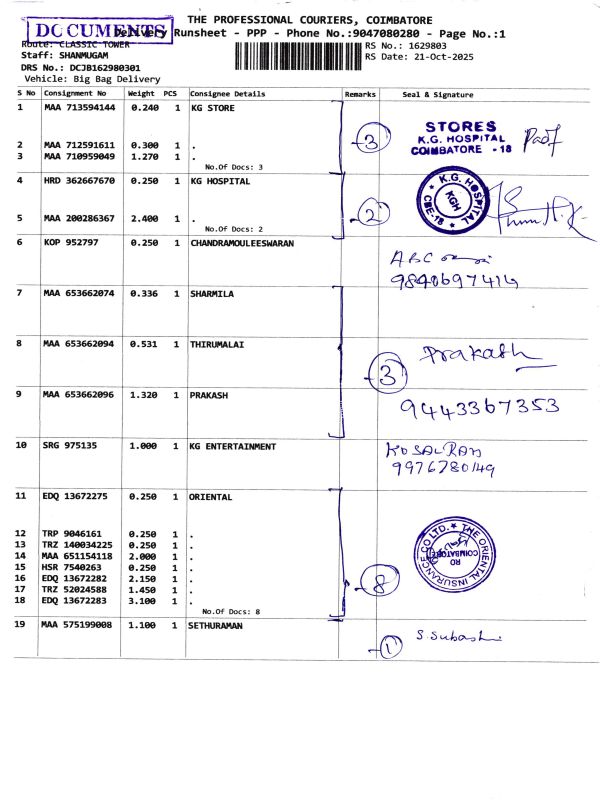 THE PROFESSIONAL COURIERS, COIMBATORE
DOCUMENTS
Delivery Runsheet - PPP - Phone No.:9047080280 - Page No.:1
Route: CLASSIC TOWER
RS No.: 1629803
Staff: SHANMUGAM
RS Date: 21-Oct-2025
DRS No.: DCJB162980301
Vehicle: Big Bag Delivery
S No Consignment No Weight PCS Consignee Details Remarks Seal & Signature
1 MAA 713594144 0.240 1 KG STORE
2 MAA 712591611 0.300 1 .
3 MAA 710959049 1.270 1 .
No.Of Docs: 3
3
STORES
K.G. HOSPITAL
COIMBATORE - 18
4 HRD 362667670 0.250 1 KG HOSPITAL
5 MAA 200286367 2.400 1 .
No.Of Docs: 2
2
K.G. HOSPITAL
KGH
CBE-18
6 KOP 952797 0.250 1 CHANDRAMOULEESWARAN
ABC
7 MAA 653662074 0.336 1 SHARMILA
8 MAA 653662094 0.531 1 THIRUMALAI
Prakash
3
9 MAA 653662096 1.320 1 PRAKASH
9443367353
10 SRG 975135 1.000 1 KG ENTERTAINMENT
11 EDQ 13672275 0.250 1 ORIENTAL
12 TRP 9046161 0.250 1 .
13 TRZ 140034225 0.250 1 .
14 MAA 651154118 2.000 1 .
15 HSR 7540263 0.250 1 .
16 EDQ 13672282 2.150 1 .
17 TRZ 52024588 1.450 1 .
18 EDQ 13672283 3.100 1 .
No.Of Docs: 8
8
THE ORIENTAL INSURANCE CO LTD.
RO
COIMBATORE
19 MAA 575199008 1.100 1 SETHURAMAN
1
S. Subash